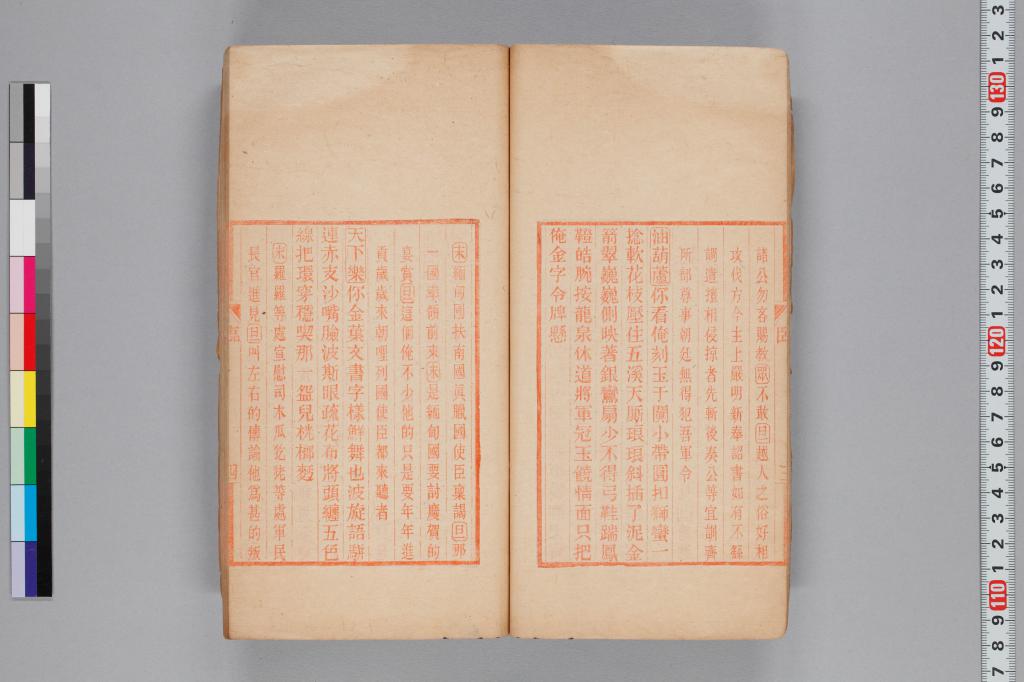 諸公勿吝賜教眾不敢旦越人之俗好相
攻伐方今主上嚴明新奉詔書如有不繇
調遣擅相侵掠者先斬後奏公等宜訓齊
所部尊事朝廷無得犯吾軍令
油葫蘆你看俺刻玉于闐小帶圓扣獅蠻一
捻軟花枝壓住五溪天厮琅琅斜插了泥金
箭翠巍巍側映著銀鸞扇少不得弓鞋踹鳳
鞾皓腕按龍泉休道將軍冠玉饒情面只把
俺金字令牌懸
末緬甸國扶南國眞臘國使臣稟謁旦那
一國率領前來末是緬甸國要討慶賀的
宴賞旦這個俺不少他的只是要年年進
貢歲歲來朝哩列國使臣都來聽者
天下樂你金葉文書字樣鮮舞也波旋語
連赤支沙嘴臉波斯眼疏花布將頭纏五色
線把環穿穩喫那一盌兒桄榔麪
末羅羅等處宣慰司木瓜犵狫等處軍民
長官進見旦叫左右的傳諭他爲甚的叛
四